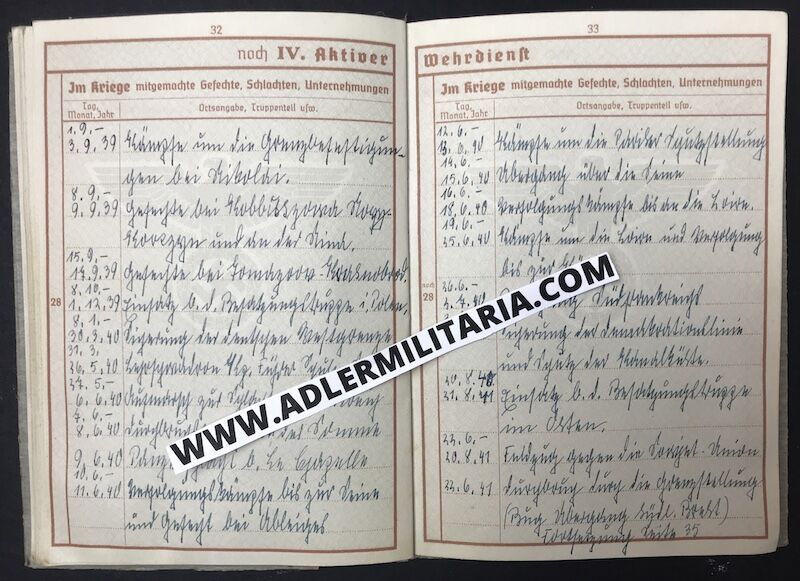 32
noch IV. Aktiver
Im Kriege mitgemachte Gefechte, Schlachten, Unternehmungen
Tag, Monat, Jahr
Ortsangabe, Truppenteil usw.
1.9.-
3.9.39 Kämpfe um die Grenzbefestigun-
gen bei Nikolai.
8.9.-
9.9.39 Gefechte bei
und an der Nida.
15.9.-
19.9.39 Gefechte bei Tomaszow-Krasnobrod.
8.10.-
28
1.12.39 Einsatz b.d. Besatzungstruppe i. Polen.
8.1.-
30.3.40 Sicherung der deutschen Westgrenze
31.3.
26.5.40
27.5.-
6.6.40 Aufmarsch zur
7.6.-
8.6.40 Durchbruch der Somme
9.6.40 b. Le
10.6.-
11.6.40 Verfolgungskämpfe bis zur Seine
und Gefecht bei Ableiges
33
Wehrdienst
Im Kriege mitgemachte Gefechte, Schlachten, Unternehmungen
Tag, Monat, Jahr
Ortsangabe, Truppenteil usw.
12.6.-
13.6.40 Kämpfe um die Pariser Schutzstellung
14.6.-
15.6.40 Übergang über die Seine
16.6.-
18.6.40 Verfolgungskämpfe bis an die Loire.
19.6.-
25.6.40 Kämpfe um die Loire und Verfolgung
bis zur
26.6.-
noch 28
Südfrankreichs
Sicherung der Demarkationslinie
und Schutz der Kanalküste.
20.8.40
21.8.41 Einsatz b.d. Besatzungstruppe
im Osten.
22.6.-
20.8.41 Feldzug gegen die Sowjet-Union
22.6.41 durch die Grenzstellung
(Bug Übergang südl. Brest)
Fortsetzung Seite 35
WWW.ADLERMILITARIA.COM